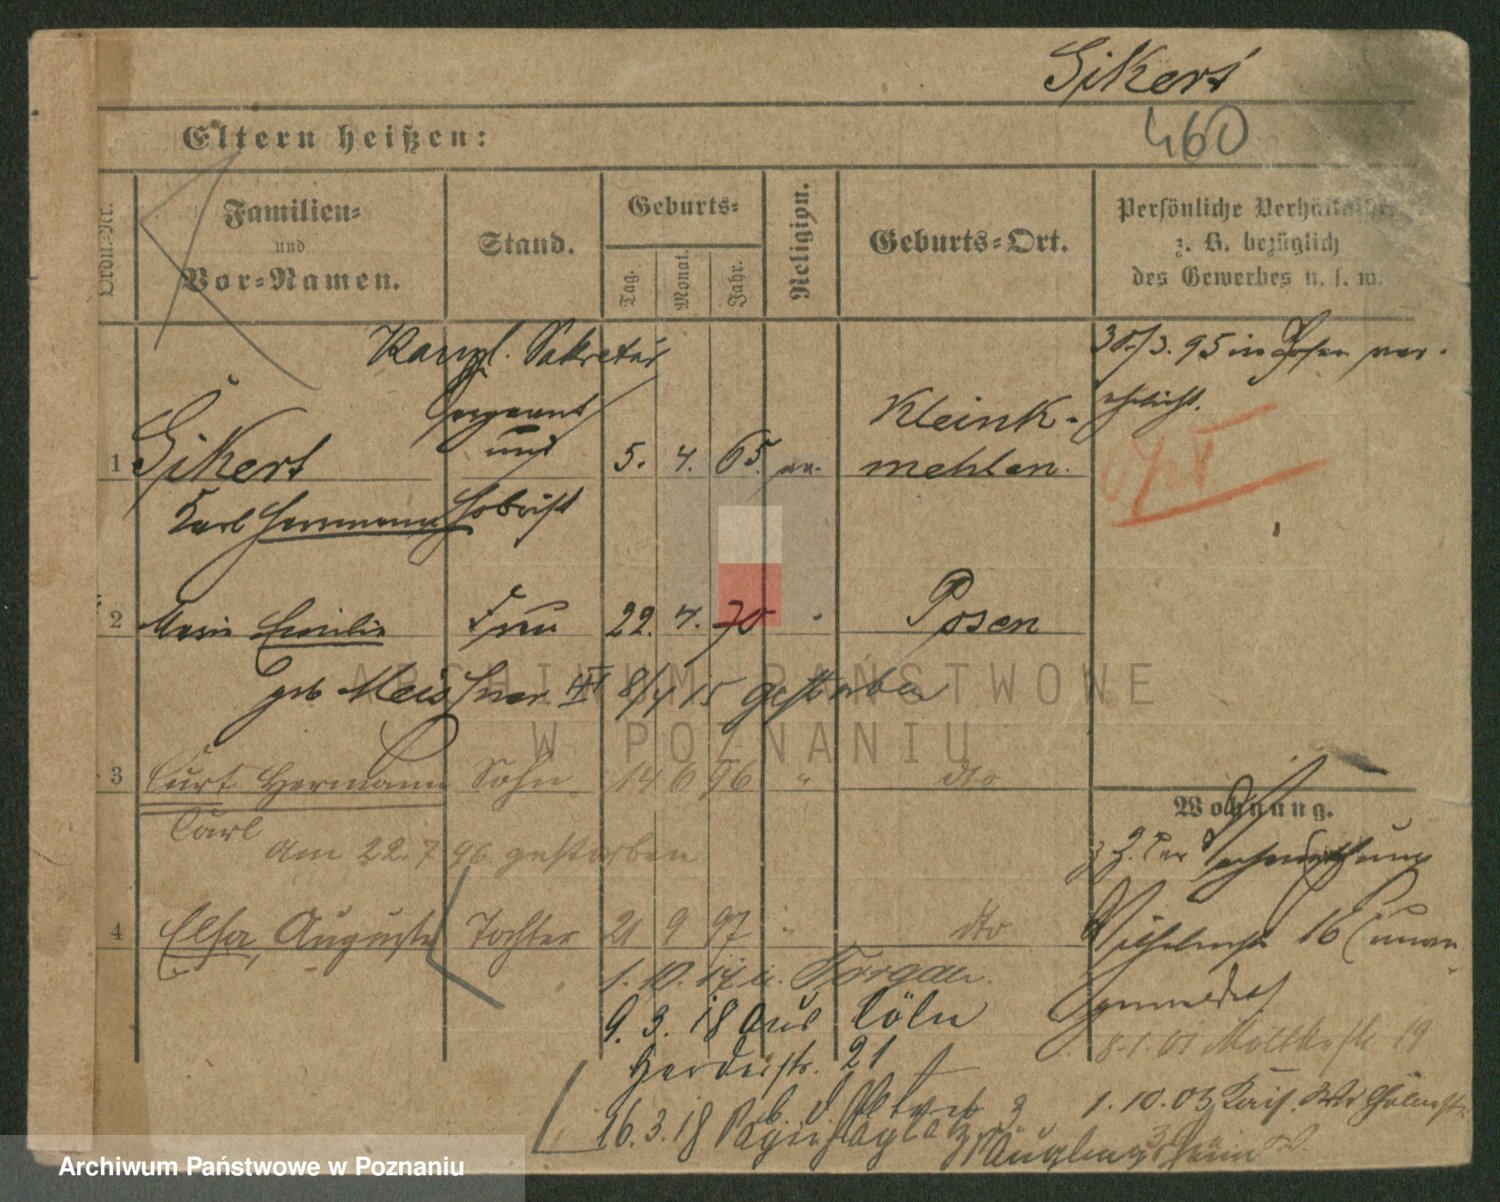 Sikert
460
Eltern heißen:
Ordn.-Nr.
Familien-
und
Vor-Namen.
Stand.
Geburts-
Tag.
Monat.
Jahr.
Religion.
Geburts-Ort.
Persönliche Verhältnisse
z. B. bezüglich
des Gewerbes u. s. w.
Kanzl. Sekretär
30/3. 95 in Posen ver-
ehelicht.
Sergeant
und
Hoboist
1 Sikert 5. 4. 65 ev. Kleink-
mehlen.
Karl Herrmann
2 Marie Emilie Frau 22. 4. 70 " Posen
geb Meissner 8/4 15 gestorben
3 Curt Hermann Sohn 14 6 96 " dto
Carl
am 22. 7 96 gestorben
4 Elsa, Auguste Tochter 21 9 97 " dto
Wohnung.
Wilhelmstr 16
1. 10. Torgau.
9. 3. 18 aus Cöln
Herderstr. 21
8.1.01 Moltkestr 19
1. 10. 03 Kais. Wilhelmstr
16. 3. 18
Säuglingsheim
ARCHIWUM PAŃSTWOWE
W POZNANIU
Archiwum Państwowe w Poznaniu